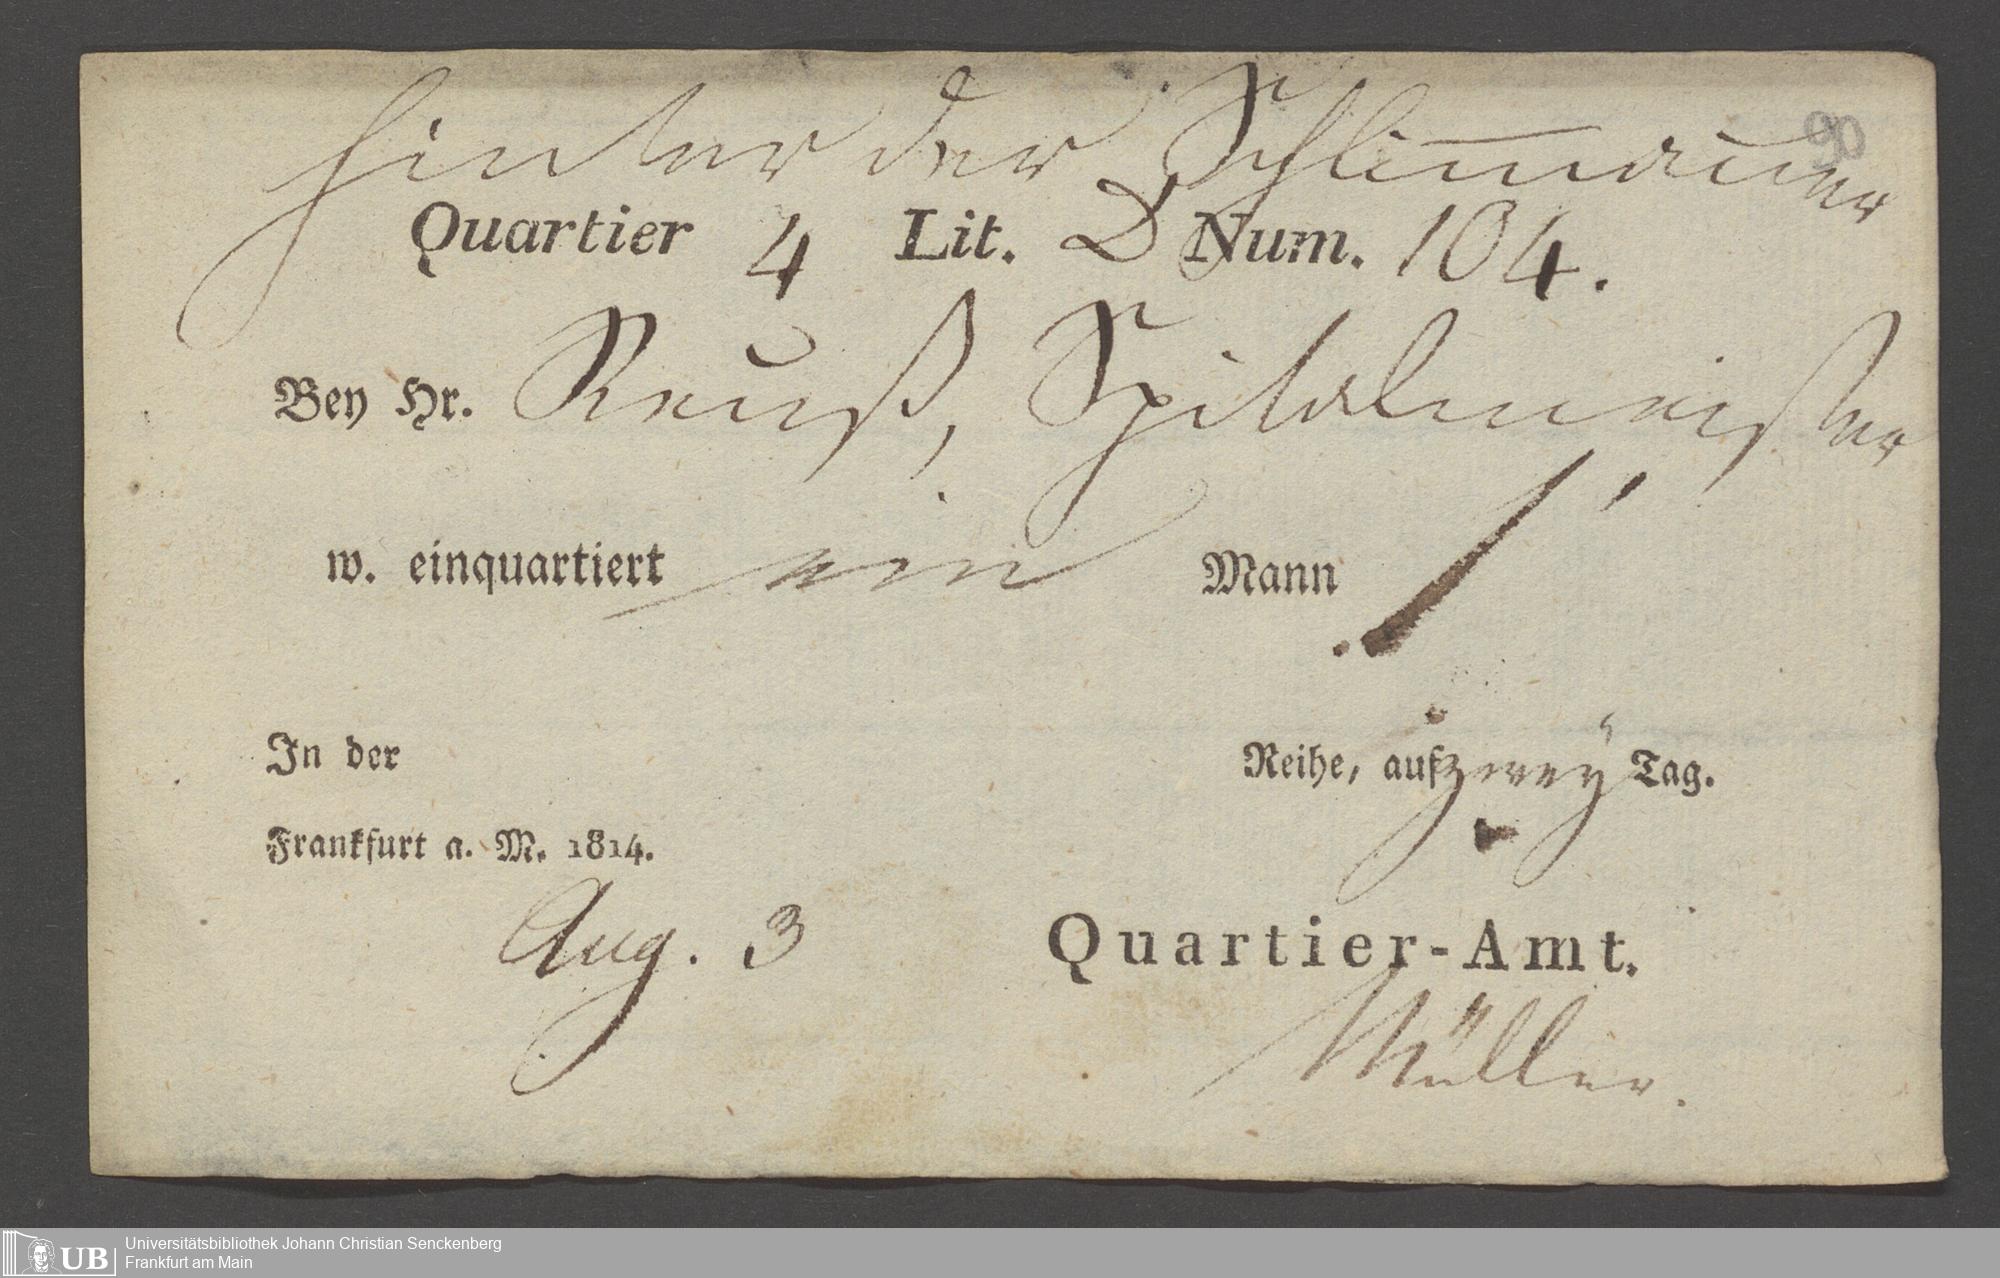 hinter der Schlimauer
90
Quartier 4 Lit. D Num. 104.
Bey Hr. Reuß, Spitalmeister
w. einquartiert ein Mann 1
In der Reihe, auf zwey Tag.
Frankfurt a. M. 1814.
Aug. 3 Quartier-Amt.
Müller.
UB Universitätsbibliothek Johann Christian Senckenberg
Frankfurt am Main